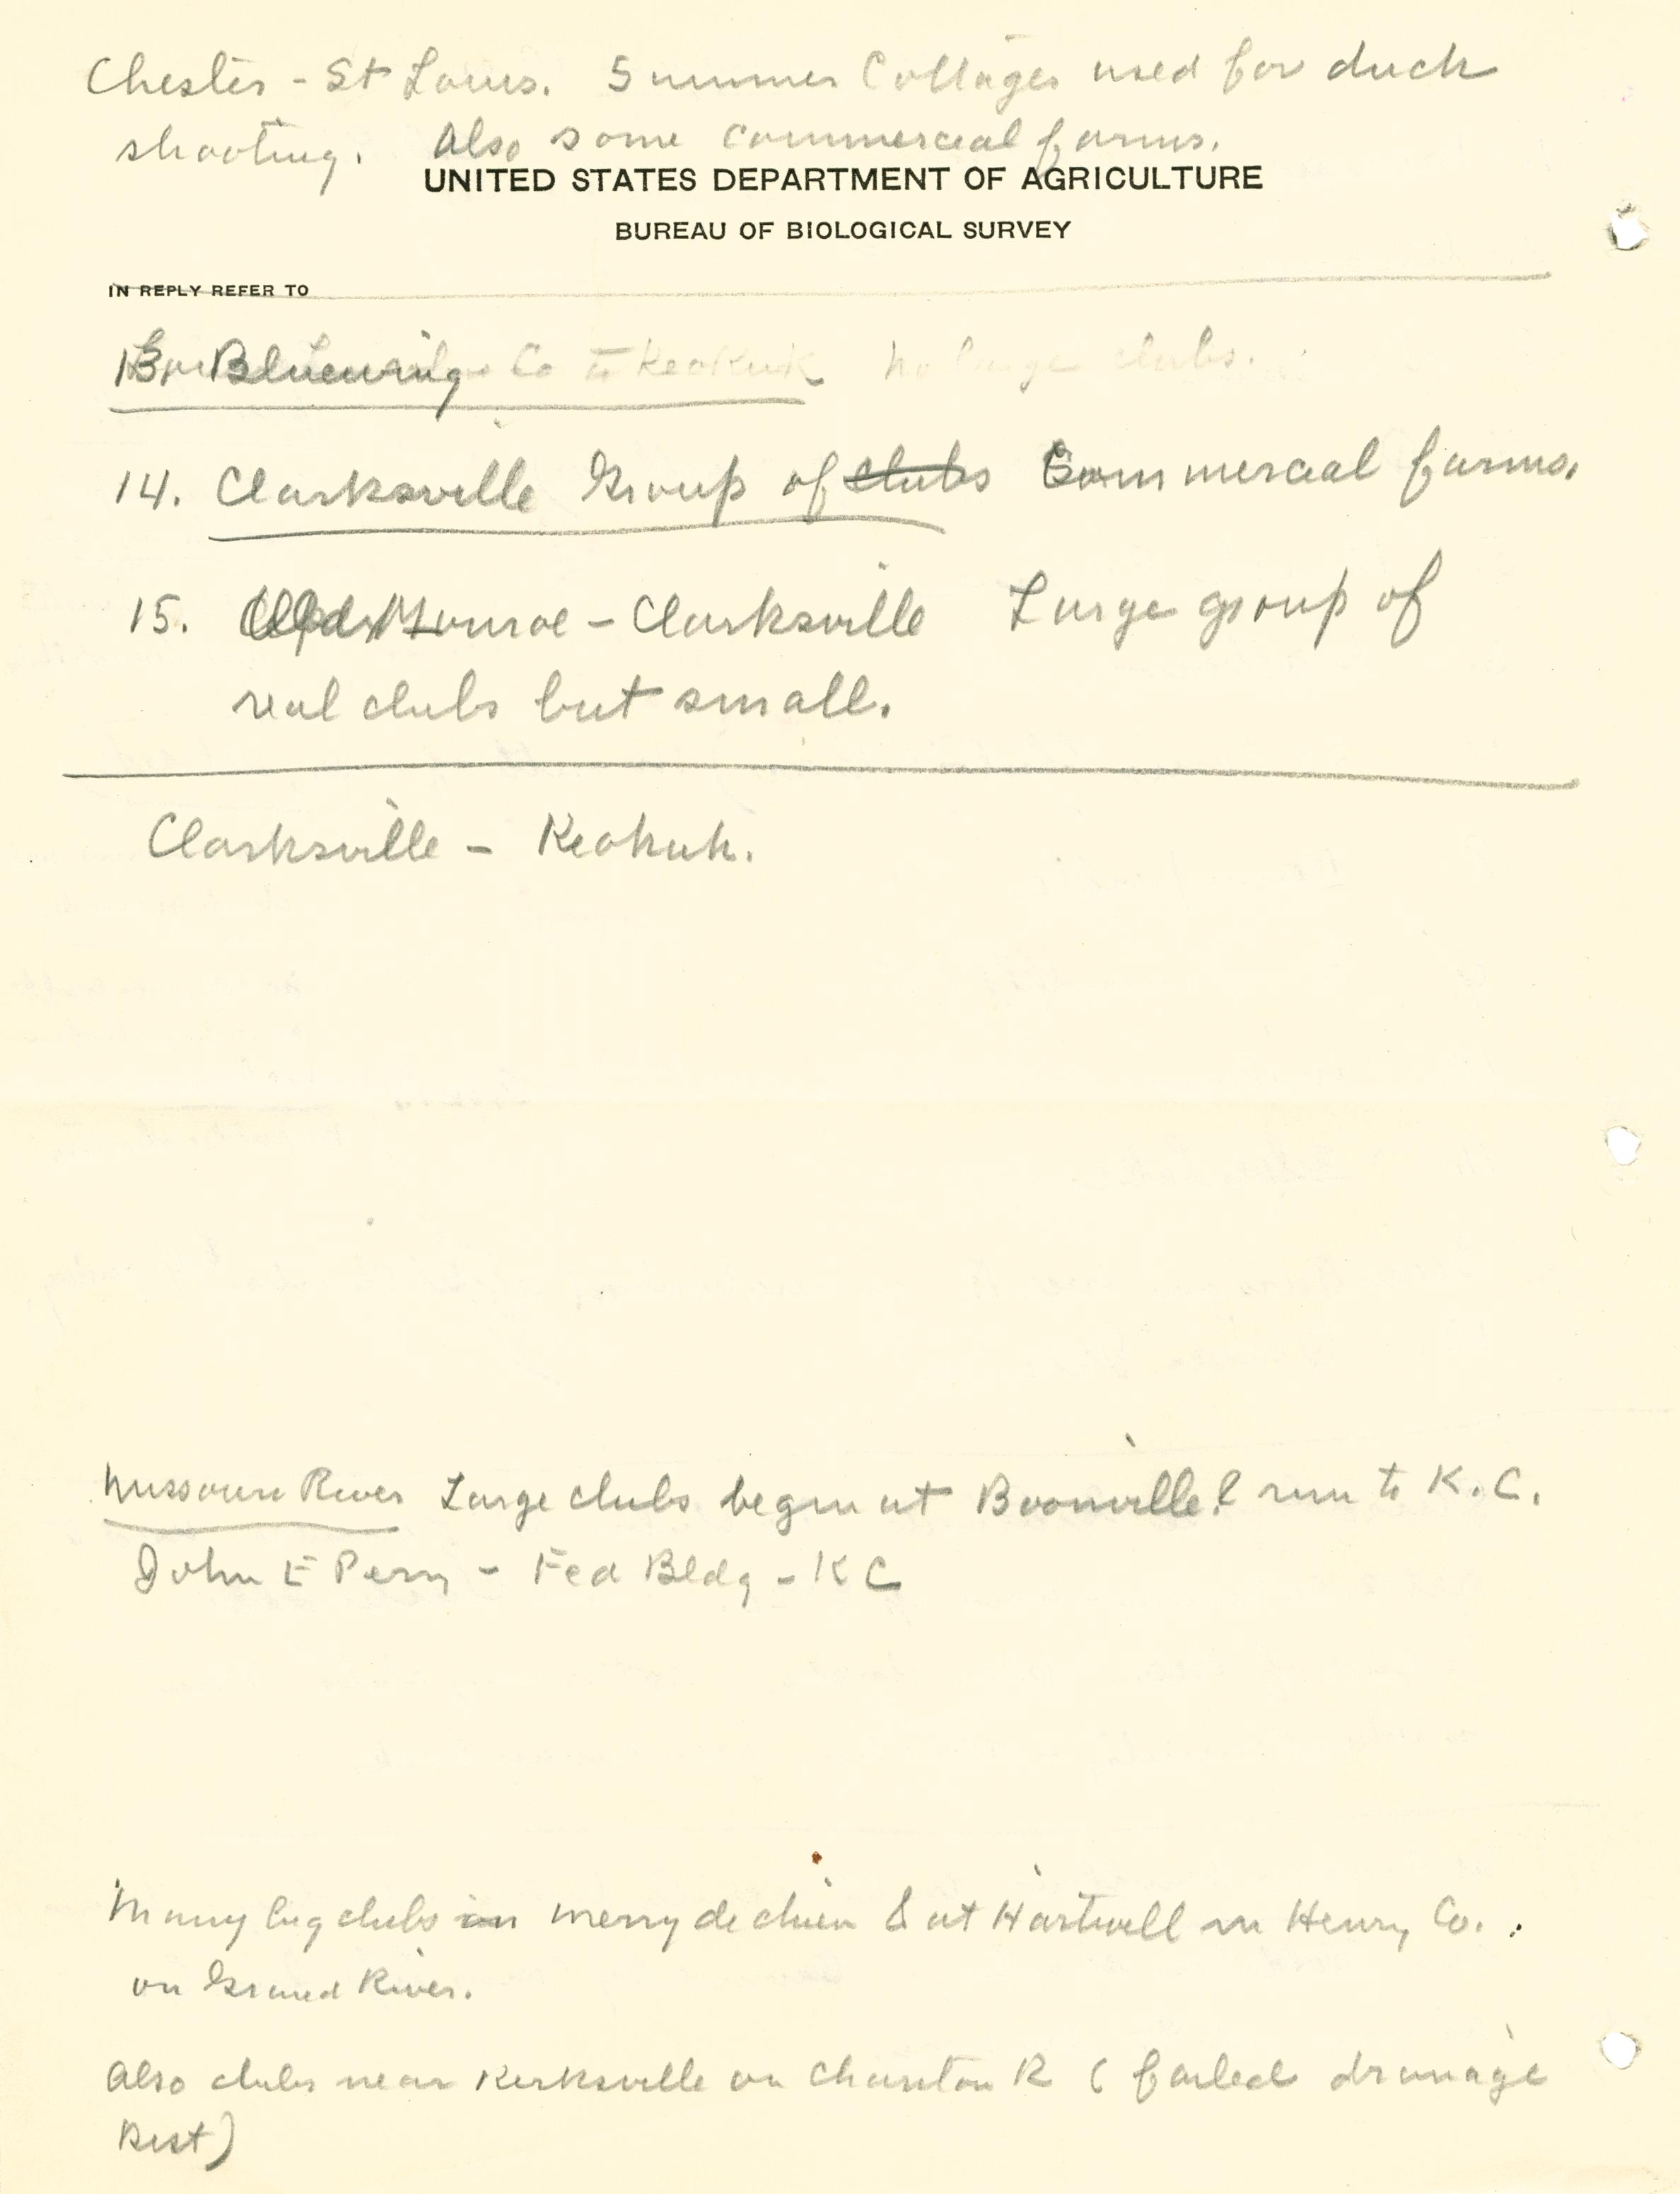 Chester - St Louis. Summer Cottages used for duck
shooting. Also some commercial farms.
UNITED STATES DEPARTMENT OF AGRICULTURE
BUREAU OF BIOLOGICAL SURVEY
IN REPLY REFER TO
13. Bluewing Co to Keokuk no large clubs.
14. Clarksville Group of clubs Commercial farms.
15. Old Monroe - Clarksville Large group of
real clubs but small.
Clarksville - Keokuk.
Missouri River Large clubs begin at Boonville & run to K.C.
John E Perry - Fed Bldg - KC
Many big clubs in merry de chien & at Hartwell in Henry Co.
on Grand River.
Also clubs near Kirksville on Chariton R ( failed drainage
Dist)